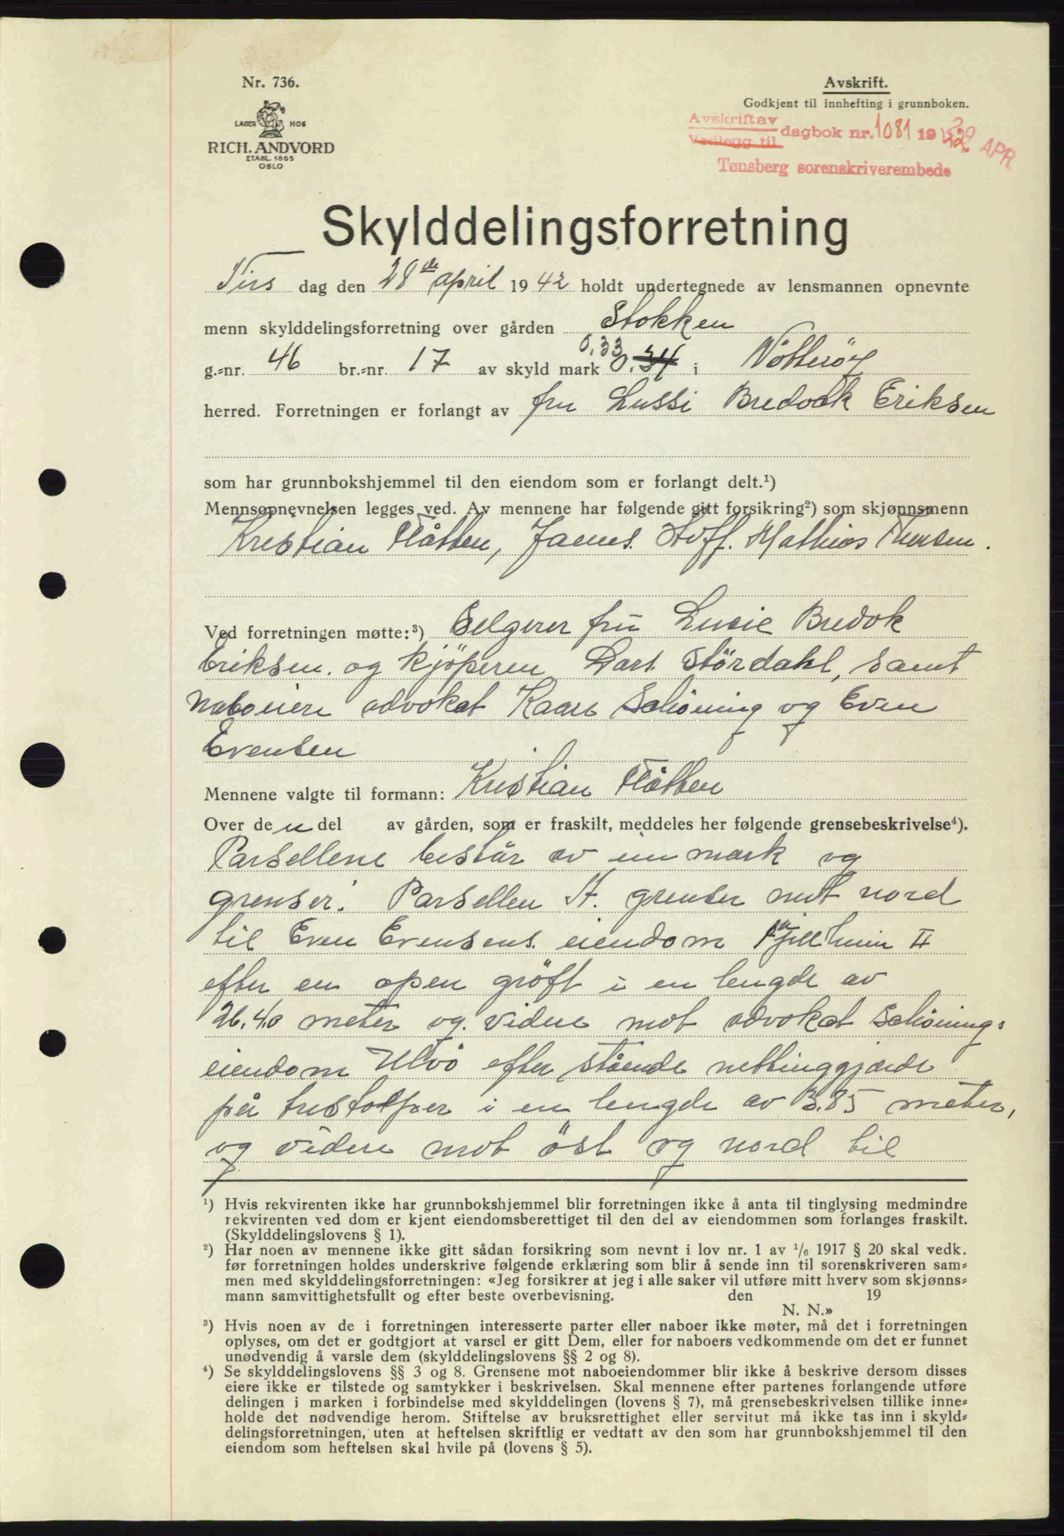 Nr. 736.
LAGER HOS
RICH. ANDVORD
ETABL. 1865
OSLO
Avskrift.
Godkjent til innhefting i grunnboken.
Avskrift av
Vedlegg til dagbok nr. 1081 1942 APR
Tønsberg sorenskriverembede
Skylddelingsforretning
Tirs dag den 28de april 1942 holdt undertegnede av lensmannen opnevnte
menn skylddelingsforretning over gården Stokken
0,33
g.=nr. 46 br.=nr. 17 av skyld mark 0,34 i Nøtterøy
herred. Forretningen er forlangt av fru Lussi Bredvok Eriksen
som har grunnbokshjemmel til den eiendom som er forlangt delt.¹)
Mennsopnevnelsen legges ved. Av mennene har følgende gitt forsikring²) som skjønnsmenn
Kristian Flåtten, James Hoff. Mathias Thorsen.
Ved forretningen møtte:³) Selgeren fru Lucie Bredok
Eriksen. og kjøperen Lars Størdahl, samt
naboeiere advokat Kaare Schøning og Even
Evensen
Mennene valgte til formann: Kristian Flåtten
Over den del av gården, som er fraskilt, meddeles her følgende grensebeskrivelse⁴).
Parsellene består av een mark og
grenser: Parsellen A. grenser mot nord
til Even Evensens eiendom Fjellheim II
efter en open grøft i en lengde av
26,40 meter og videre mot advokat Schønings
eiendom Ulvø efter stående nettinggjærde
på trestolper i en lengde av 3.85 meter,
og videre mot øst og nord til
¹) Hvis rekvirenten ikke har grunnbokshjemmel blir forretningen ikke å anta til tinglysing medmindre
rekvirenten ved dom er kjent eiendomsberettiget til den del av eiendommen som forlanges fraskilt.
(Skylddelingslovens § 1).
²) Har noen av mennene ikke gitt sådan forsikring som nevnt i lov nr. 1 av 1/6 1917 § 20 skal vedk.
før forretningen holdes underskrive følgende erklæring som blir å sende inn til sorenskriveren sam=
men med skylddelingsforretningen: «Jeg forsikrer at jeg i alle saker vil utføre mitt hverv som skjønns=
mann samvittighetsfullt og efter beste overbevisning. den 19
N. N.»
³) Hvis noen av de i forretningen interesserte parter eller naboer ikke møter, må det i forretningen
oplyses, om det er godtgjort at varsel er gitt Dem, eller for naboers vedkommende om det er funnet
unødvendig å varsle dem (skylddelingslovens §§ 2 og 8).
⁴) Se skylddelingslovens §§ 3 og 8. Grensene mot naboeiendommer blir ikke å beskrive dersom disses
eiere ikke er tilstede og samtykker i beskrivelsen. Skal mennene efter partenes forlangende utføre
delingen i marken i forbindelse med skylddelingen (lovens § 7), må grensebeskrivelsen tillike inne=
holde det nødvendige herom. Stiftelse av bruksrettighet eller servitut må ikke tas inn i skyld=
delingsforretningen, uten at heftelsen skriftlig er vedtatt av den som har grunnbokshjemmel til den
eiendom som heftelsen skal hvile på (lovens § 5).